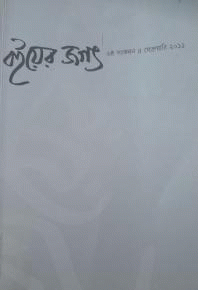 বইয়ের জগৎ
৬ষ্ঠ সংকলন ॥ ফেব্রুয়ারি ২০১১